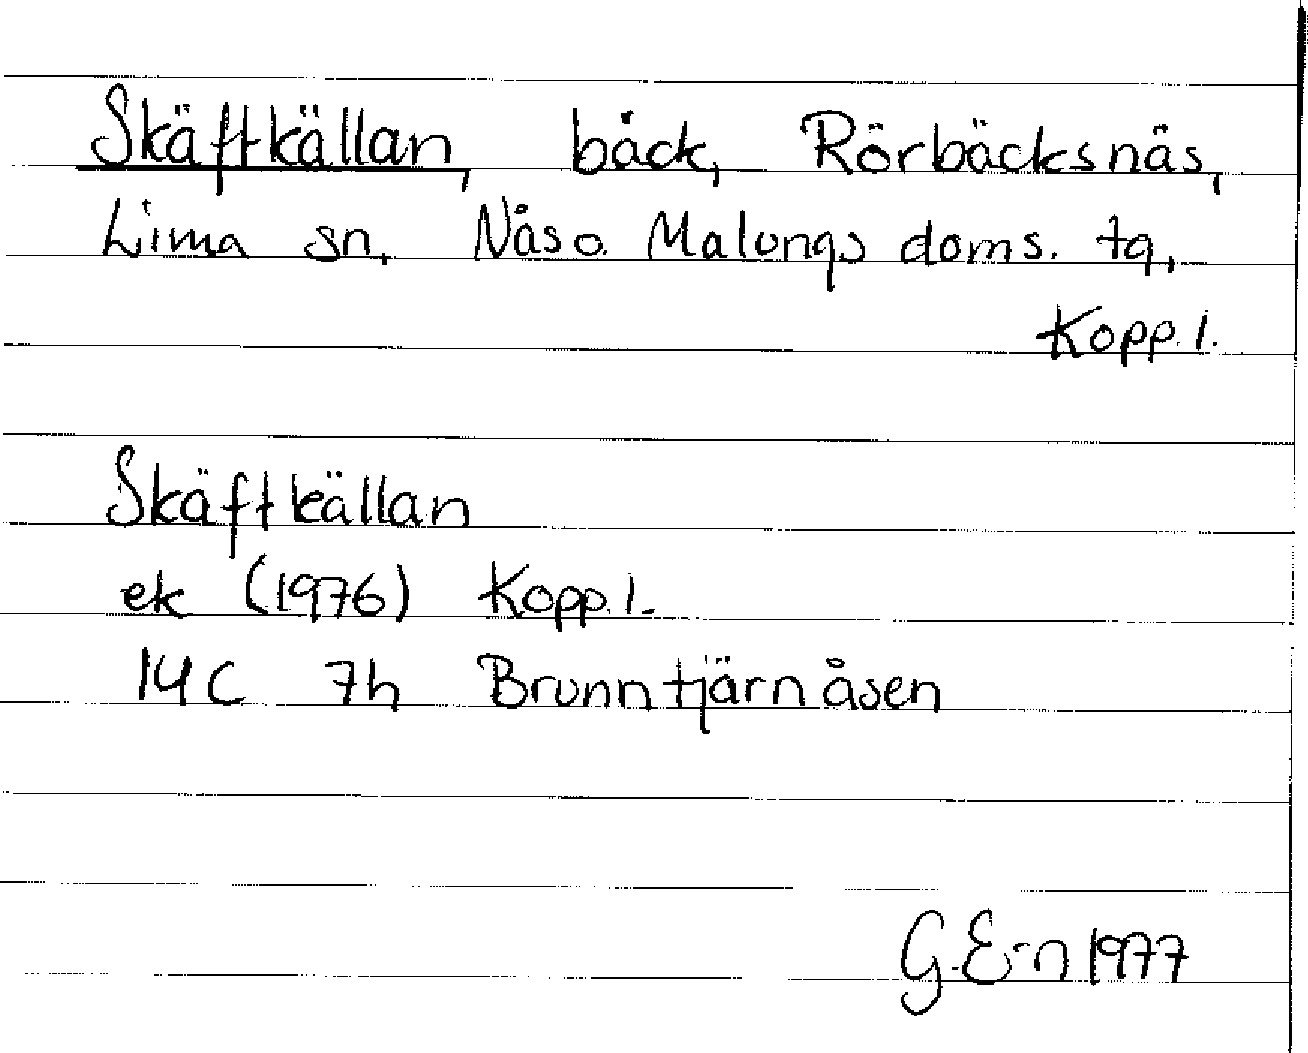 Skäftkällan, bäck, Rörbäcksnäs,
Lima sn, Näs o. Malungs doms. tg,
Kopp. l.
Skäftkällan
ek (1976) Kopp. l.
14C 7h Brunntjärnåsen
G. E-n 1977